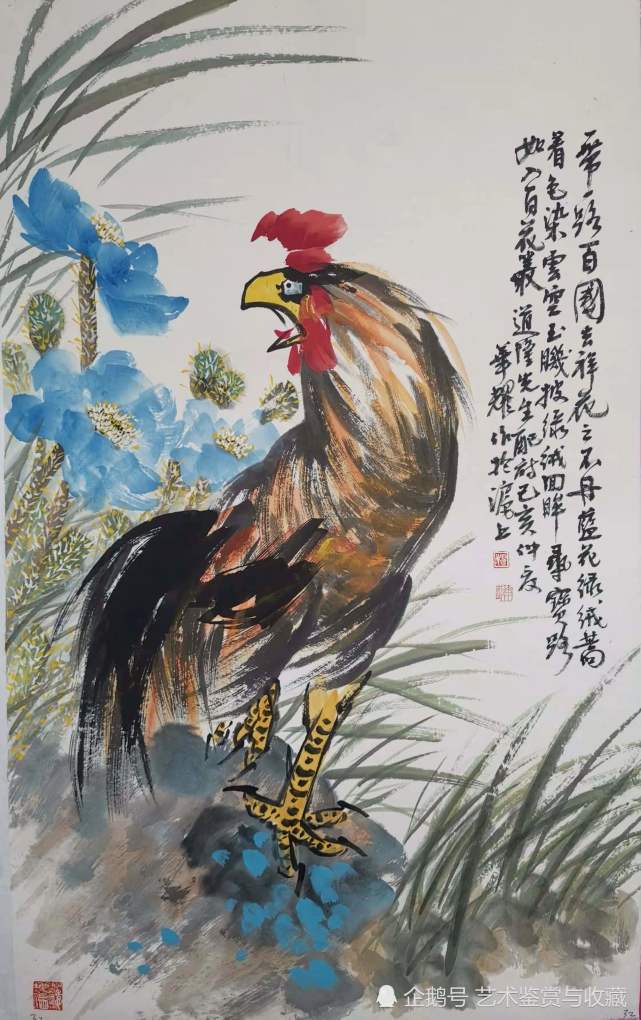 一带一路百国吉祥花之不丹蓝花绿绒蒿
着色染云空玉肌披绿绒回眸寻宝路
如入百花丛 道隆先生配诗己亥仲夏
华耀作於沪上
企鹅号 艺术鉴赏与收藏